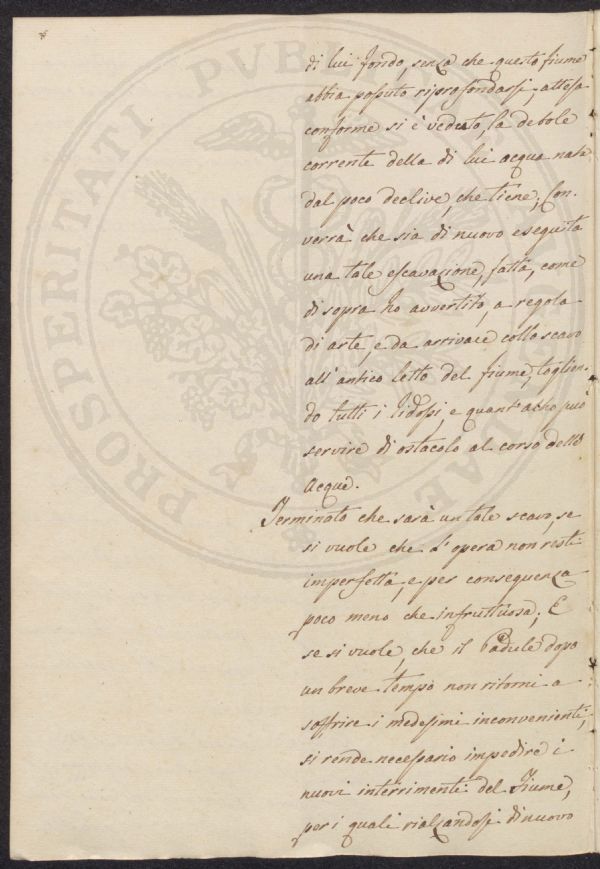 di lui fondo, senza che questo fiume
abbia potuto riprofondarsi, attesa
conforme si è veduto, la debole
corrente della di lui acqua nata
dal poco declive, che tiene; Con-
verrà che sia di nuovo eseguita
una tale escavazione, fatta, come
di sopra ho avvertito, a regola
di arte, e da arrivare collo scavo
all'antico letto del fiume, toglien-
do tutti i ridossi, e quant'altro può
servire di ostacolo al corso delle
acque.
Terminato che sarà un tale scavo, se
si vuole che l'opera non resti
imperfetta, e per conseguenza
poco meno che infruttuosa; E
se si vuole, che il Padule dopo
un breve tempo non ritorni a
soffrire i medesimi inconvenienti,
si rende necessario impedire i
nuovi interrimenti del Fiume,
per i quali rialzandosi di nuovo
PROSPERITATI PUBLICAE